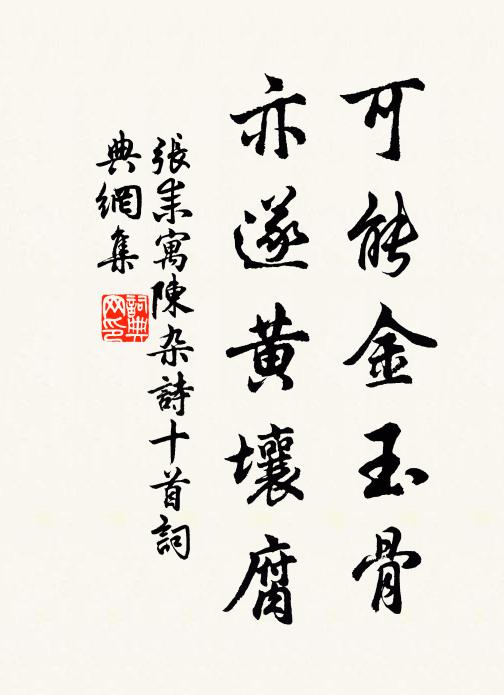 可能金玉骨
亦遂黄壤腐
張耒寓陳杂詩十首詞
典網集
詞典
网印